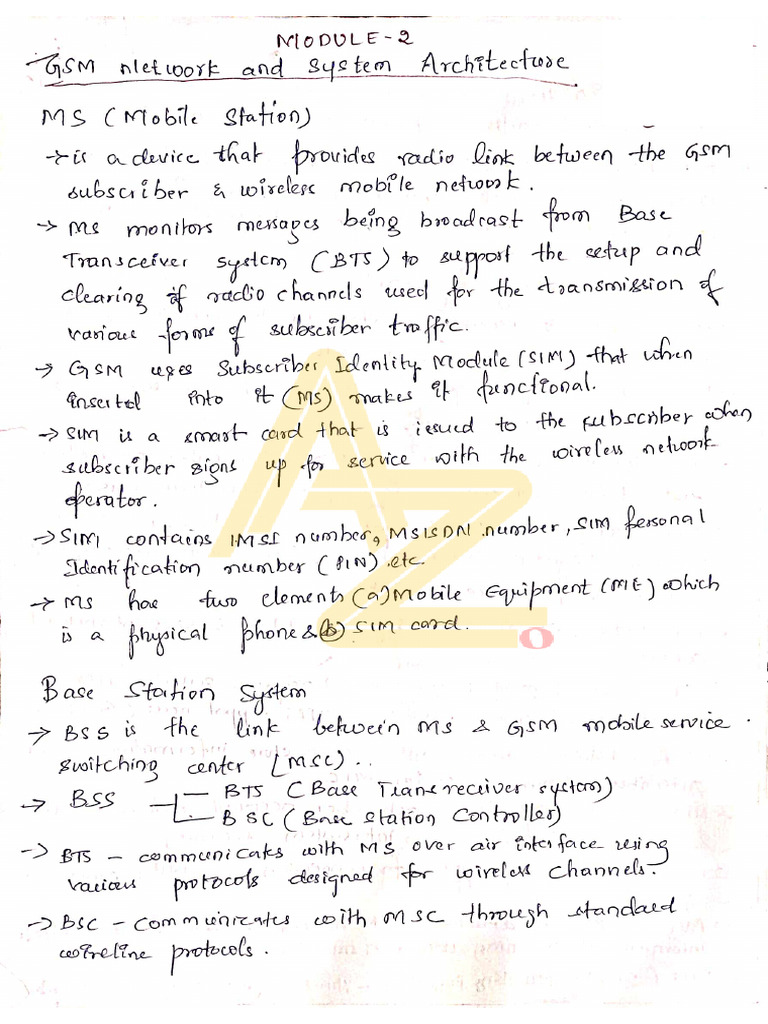 MODULE-2
GSM Network and System Architecture
MS (Mobile Station)
→ is a device that provides radio link between the GSM
subscriber & wireless mobile network.
→ MS monitors messages being broadcast from Base
Transceiver system (BTS) to support the setup and
clearing of radio channels used for the transmission of
various forms of subscriber traffic.
→ GSM uses Subscriber Identity Module (SIM) that when
inserted into it (MS) makes it functional.
→ SIM is a smart card that is issued to the subscriber when
subscriber signs up for service with the wireless network
operator.
→ SIM contains IMSI number, MSISDN number, SIM Personal
Identification number (PIN) etc.
→ MS has two elements (a) Mobile Equipment (ME) which
is a physical phone & (b) SIM card.
AZ
O
Base Station System
→ BSS is the link between MS & GSM mobile service
switching center (MSC)..
→ BSS — BTS (Base Transreceiver system)
— BSC (Base Station Controller)
→ BTS - communicates with MS over air interface using
various protocols designed for wireless channels.
→ BSC - Communicates with MSC through standard
wireline protocols.